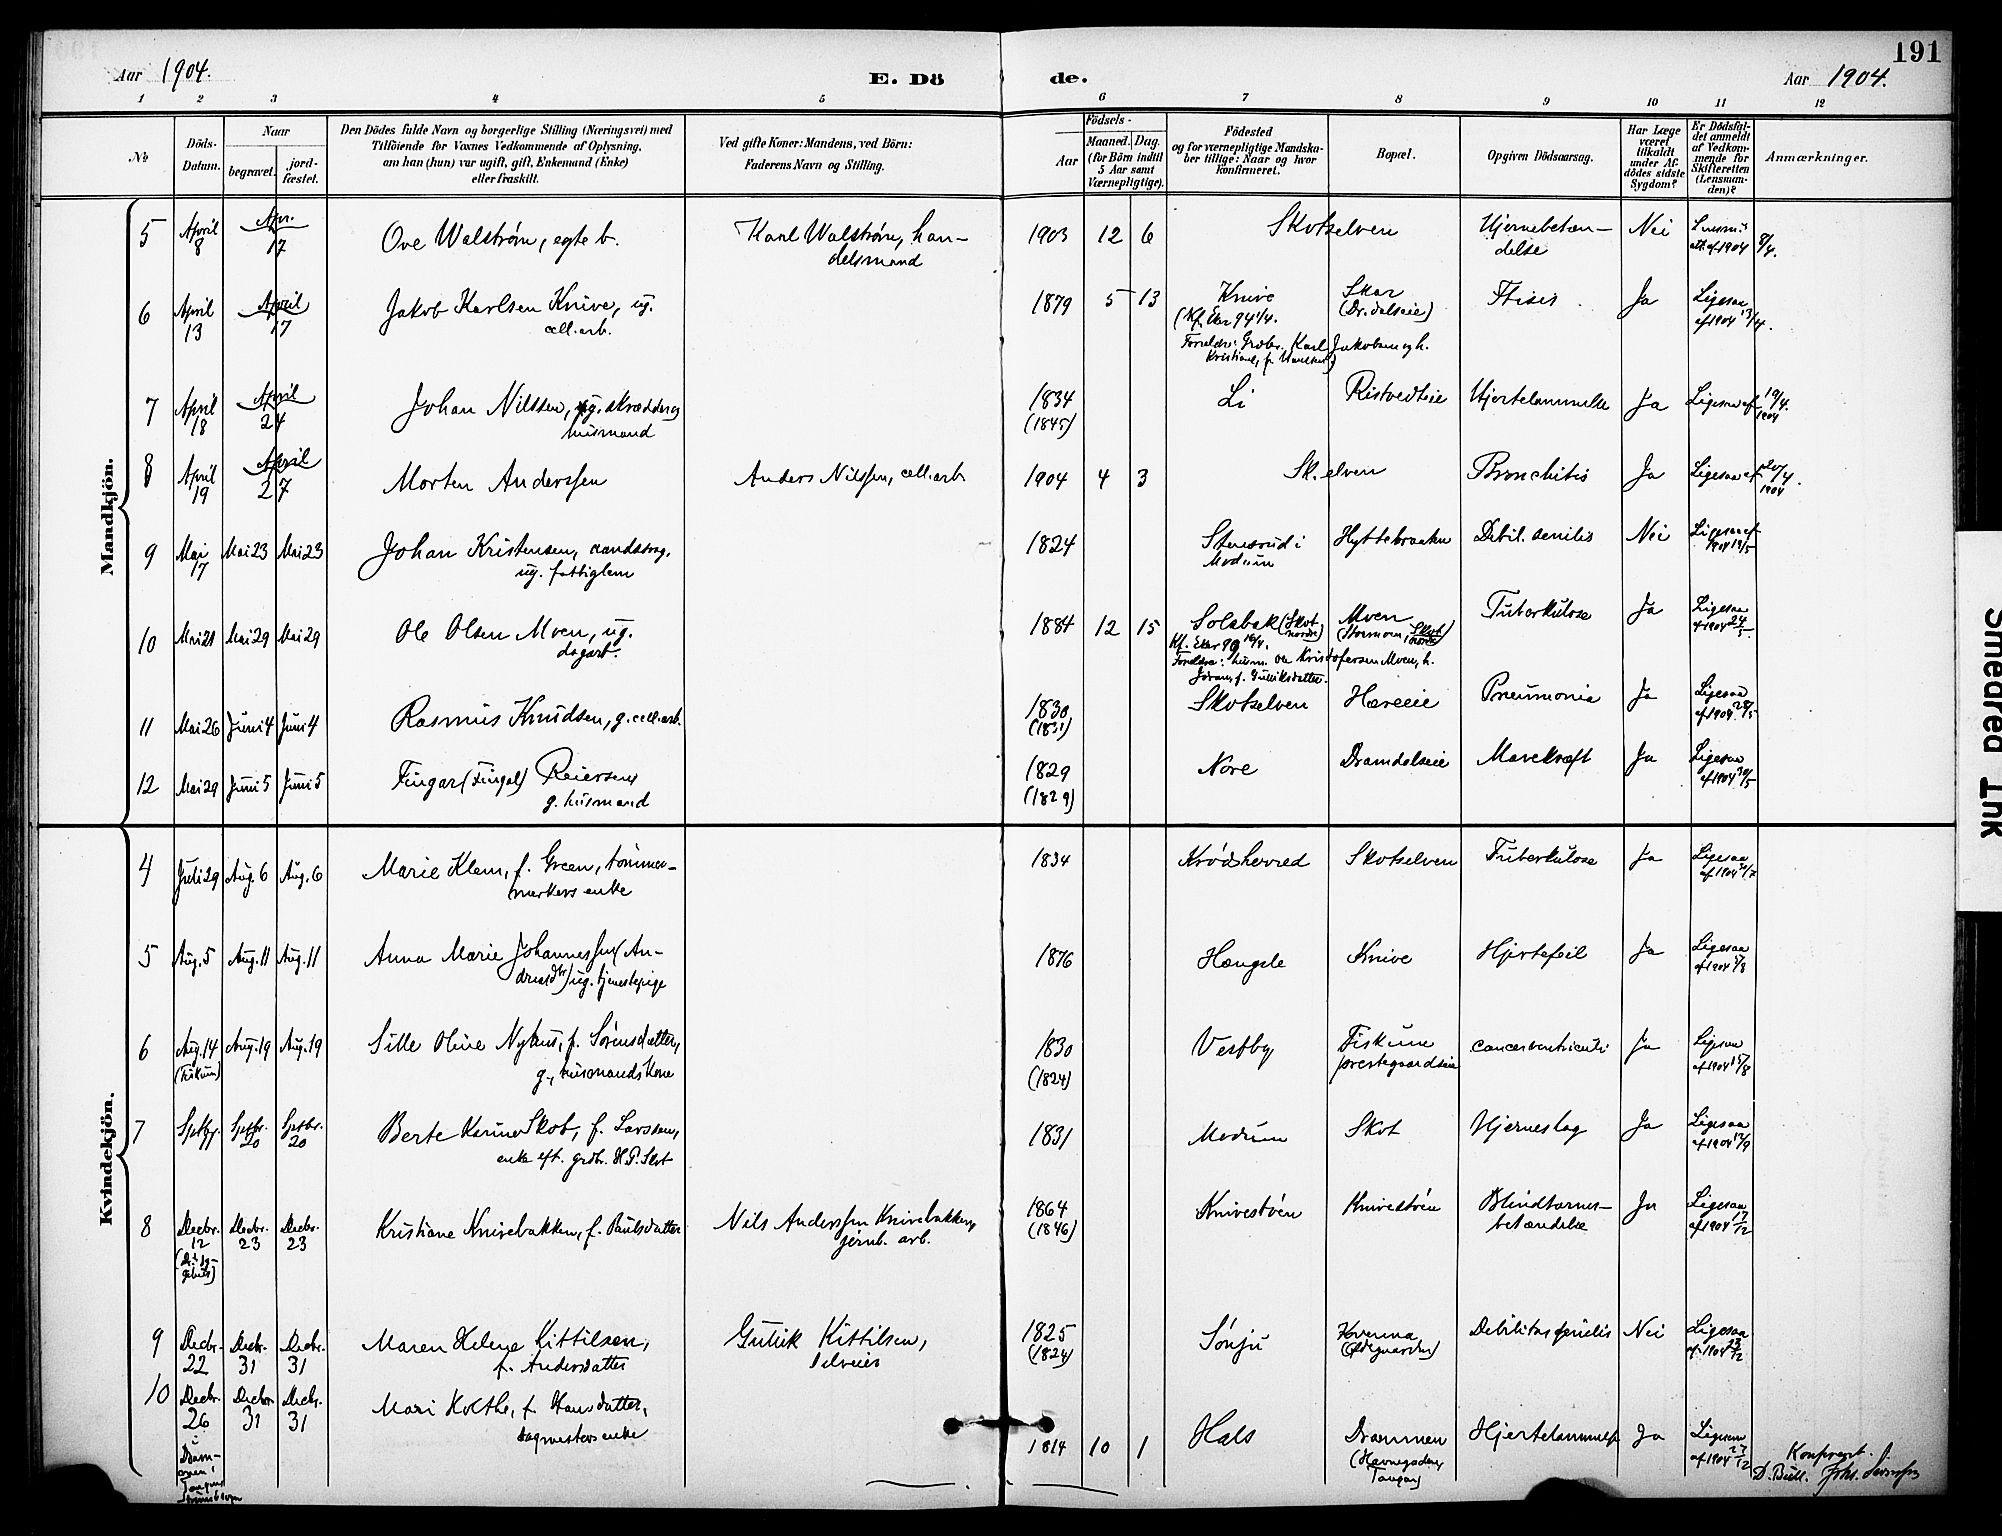 191
Aar 1904.
E. Dö
de.
Aar 1904.
1 2 3 4 5 6 7 8 9 10 11 12
No
Döds-
Datum.
Naar
begravet.
jord-
fæstet.
Den Dödes fulde Navn og borgerlige Stilling (Næringsvei) med
Tilföiende for Voxnes Vedkommende af Oplysning,
om han (hun) var ugift, gift, Enkemand (Enke)
eller fraskilt.
Ved gifte Koner: Mandens, ved Börn:
Faderens Navn og Stilling.
Födsels-
Aar
Maaned. Dag.
(for Börn indtil
5 Aar samt
Værnepligtige).
Födested
og for værnepligtige Mandska-
ber tillige: Naar og hvor
konfirmeret.
Bopæl.
Opgiven Dödsaarsag.
Har Læge
været
tilkaldt
under Af-
dödes sidste
Sygdom?
Er Dödsfal-
det anmeldt
af Vedkom-
mende for
Skifteretten
(Lensman-
den)?
Anmærkninger.
Mandkjön.
5 April 8 Apr. 17 Ove Walstrøm, egte b. Karl Walstrøm, han-
delsmand 1903 12 6 Skotselven Hjernebetæn-
delse Nei Lensm.s att. af 1904 8/4.
6 April 13 April 17 Jakob Karlsen Knive, ug.
cell.arb. 1879 5 13 Knive Skar Ftisis Ja Ligesaa
(Kf. Eker 94 1/4. (Dr.dalseie) af 1904 13/4.
Forældre: Grdbr. Karl Jakobsen og h.
7 April 18 April 24 Johan Nilssen, ug. skrædder og
husmand 1834
(1845) Li Ristvedteie Hjertelammelse Ja Ligesaa af 19/4.
1904
8 April 19 April 27 Morten Anderssen Anders Nilssen, cell.arb. 1904 4 3 Sk.elven Bronchitis Ja Ligesaa af 20/4.
1904
9 Mai 17 Mai 23 Mai 23 Johan Kristensen,
ug. fattiglem 1824 Stensrud i
Modum Hyttebraaten Debil. senilis Nei Ligesaa af
1904 19/5
10 Mai 21 Mai 29 Mai 29 Ole Olsen Moen, ug.
dagarb. 1884 12 15 Solabak (Skot
nordre) Moen Tuberkulose Ja Ligesaa
af 1904 24/5
Kf. Eker 99 16/4.
Forældre: husm. Ole Kristofersen Moen, h.
f. Gulliksdatter.
11 Mai 26 Juni 4 Juni 4 Rasmus Knudsen, g. cell.arb. 1830
(1831) Skotselven Hareeie Pneumonia Ja Ligesaa
af 1904 28/5
12 Mai 29 Juni 5 Juni 5 Fingar (Fingal) Reiersen
g. husmand 1829
(1829) Nore Dramdalseie Mavekræft Ja Ligesaa
af 1904 30/5
Kvindekjön.
4 Juli 29 Aug. 6 Aug. 6 Marie Klem, f. Green, tømmer-
merkers enke 1834 Krødsherred Skotselven Tuberkulose Ja Ligesaa
af 1904 30/7
5 Aug. 5 Aug. 11 Aug. 11 Anna Marie Johannessen (An-
dreasdtr) ug. tjenestepige 1876 Hængsle Knive Hjertefeil Ja Ligesaa
af 1904 5/8
6 Aug. 14 Aug. 19 Aug. 19 Sille Oline Nyhus, f. Sørensdatter,
(Fiskum) g., husmandskone 1830
(1824) Vestby Fiskum
prestegaardseie cancer ventriculi Ja Ligesaa
af 1904 15/8
7 Septbr. 20 Septbr. 20 Berte Karine Skot, f. Larssen,
enke eft. grdbr. H.P. Skot 1831 Modum Skot Hjerneslag Ja Ligesaa
af 1904 12/9
8 Decbr. 12 Decbr. 23 Decbr. 23 Kristiane Knivebakken, f. Paulsdatter Nils Anderssen Knivebakken,
jernb. arb. 1864
(1846) Knivestøen Knivestøen Blindtarms-
betændelse Ja Ligesaa
af 1904 17/12
9 Decbr. 22 Decbr. 31 Decbr. 31 Maren Helene Kittilsen,
f. Andersdatter Gulik Kittilsen,
selveier 1825
(1824) Sønju Debilitas senilis Nei Ligesaa
af 1904 23/12
10 Decbr. 26 Decbr. 31 Decbr. 31 Mari Kolthe, f. Hansdatter,
sagmesters enke 1814 10 1 Hals Drammen
(Havnegaden,
Tangen) Hjertelammelse Ja Ligesaa
af 1904 27/12
i
Dram-
men,
Tangens
Konfereret.
D. Bull.
Smedred Ink